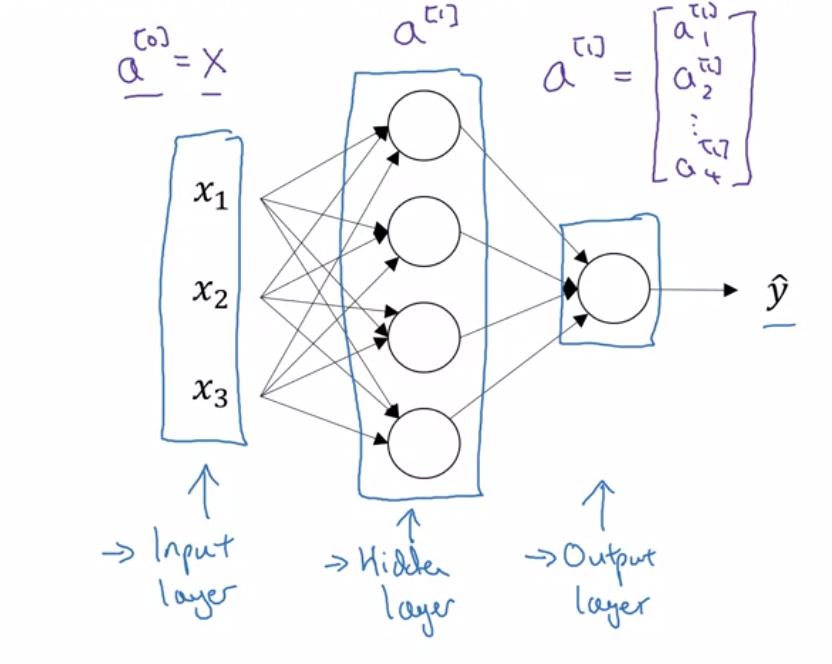 a^[0] = X
a^[1]
a^[1] = [a_1^[1] a_2^[1] ⋮ a_4^[1]]
x_1
x_2
x_3
ŷ
→ Input layer
→ Hidden layer
→ Output layer